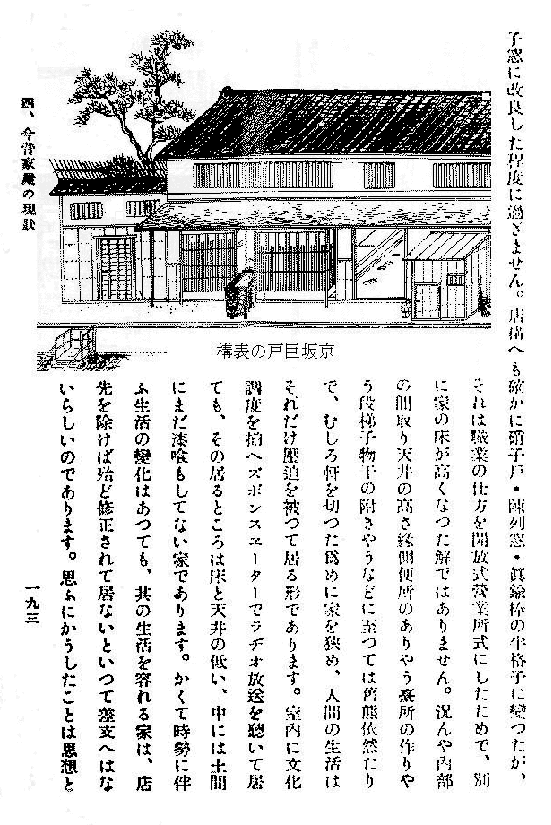 子窓に改良した程度に過ぎません。店構へも確かに硝子戸・陳列窓・眞鍮棒の半格子に變つたが、
それは職業の仕方を開放式營業所式にしたためで、別
に家の床が高くなつた譯ではありません。況んや内部
の間取り天井の高さ縁側便所のありやう臺所の作りや
う段梯子物干の附きやうなどに至つては舊態依然たり
で、むしろ軒を切つた爲めに家を狹め、人間の生活は
それだけ壓迫を被つて居る形であります。室内に文化
調度を拍へズボンスエーターでラヂオ放送を聽いて居
ても、その居るところは床と天井の低い、中には土間
にまだ漆喰もしてない家であります。かくて時勢に伴
ふ生活の變化はあつても、其の生活を容れる家は、店
先を除けば殆ど修正されて居ないといつて差支へはな
いらしいのであります。思ふにかうしたことは思想と
京坂巨戸の表構
四、今昔家庭の現狀
一九三